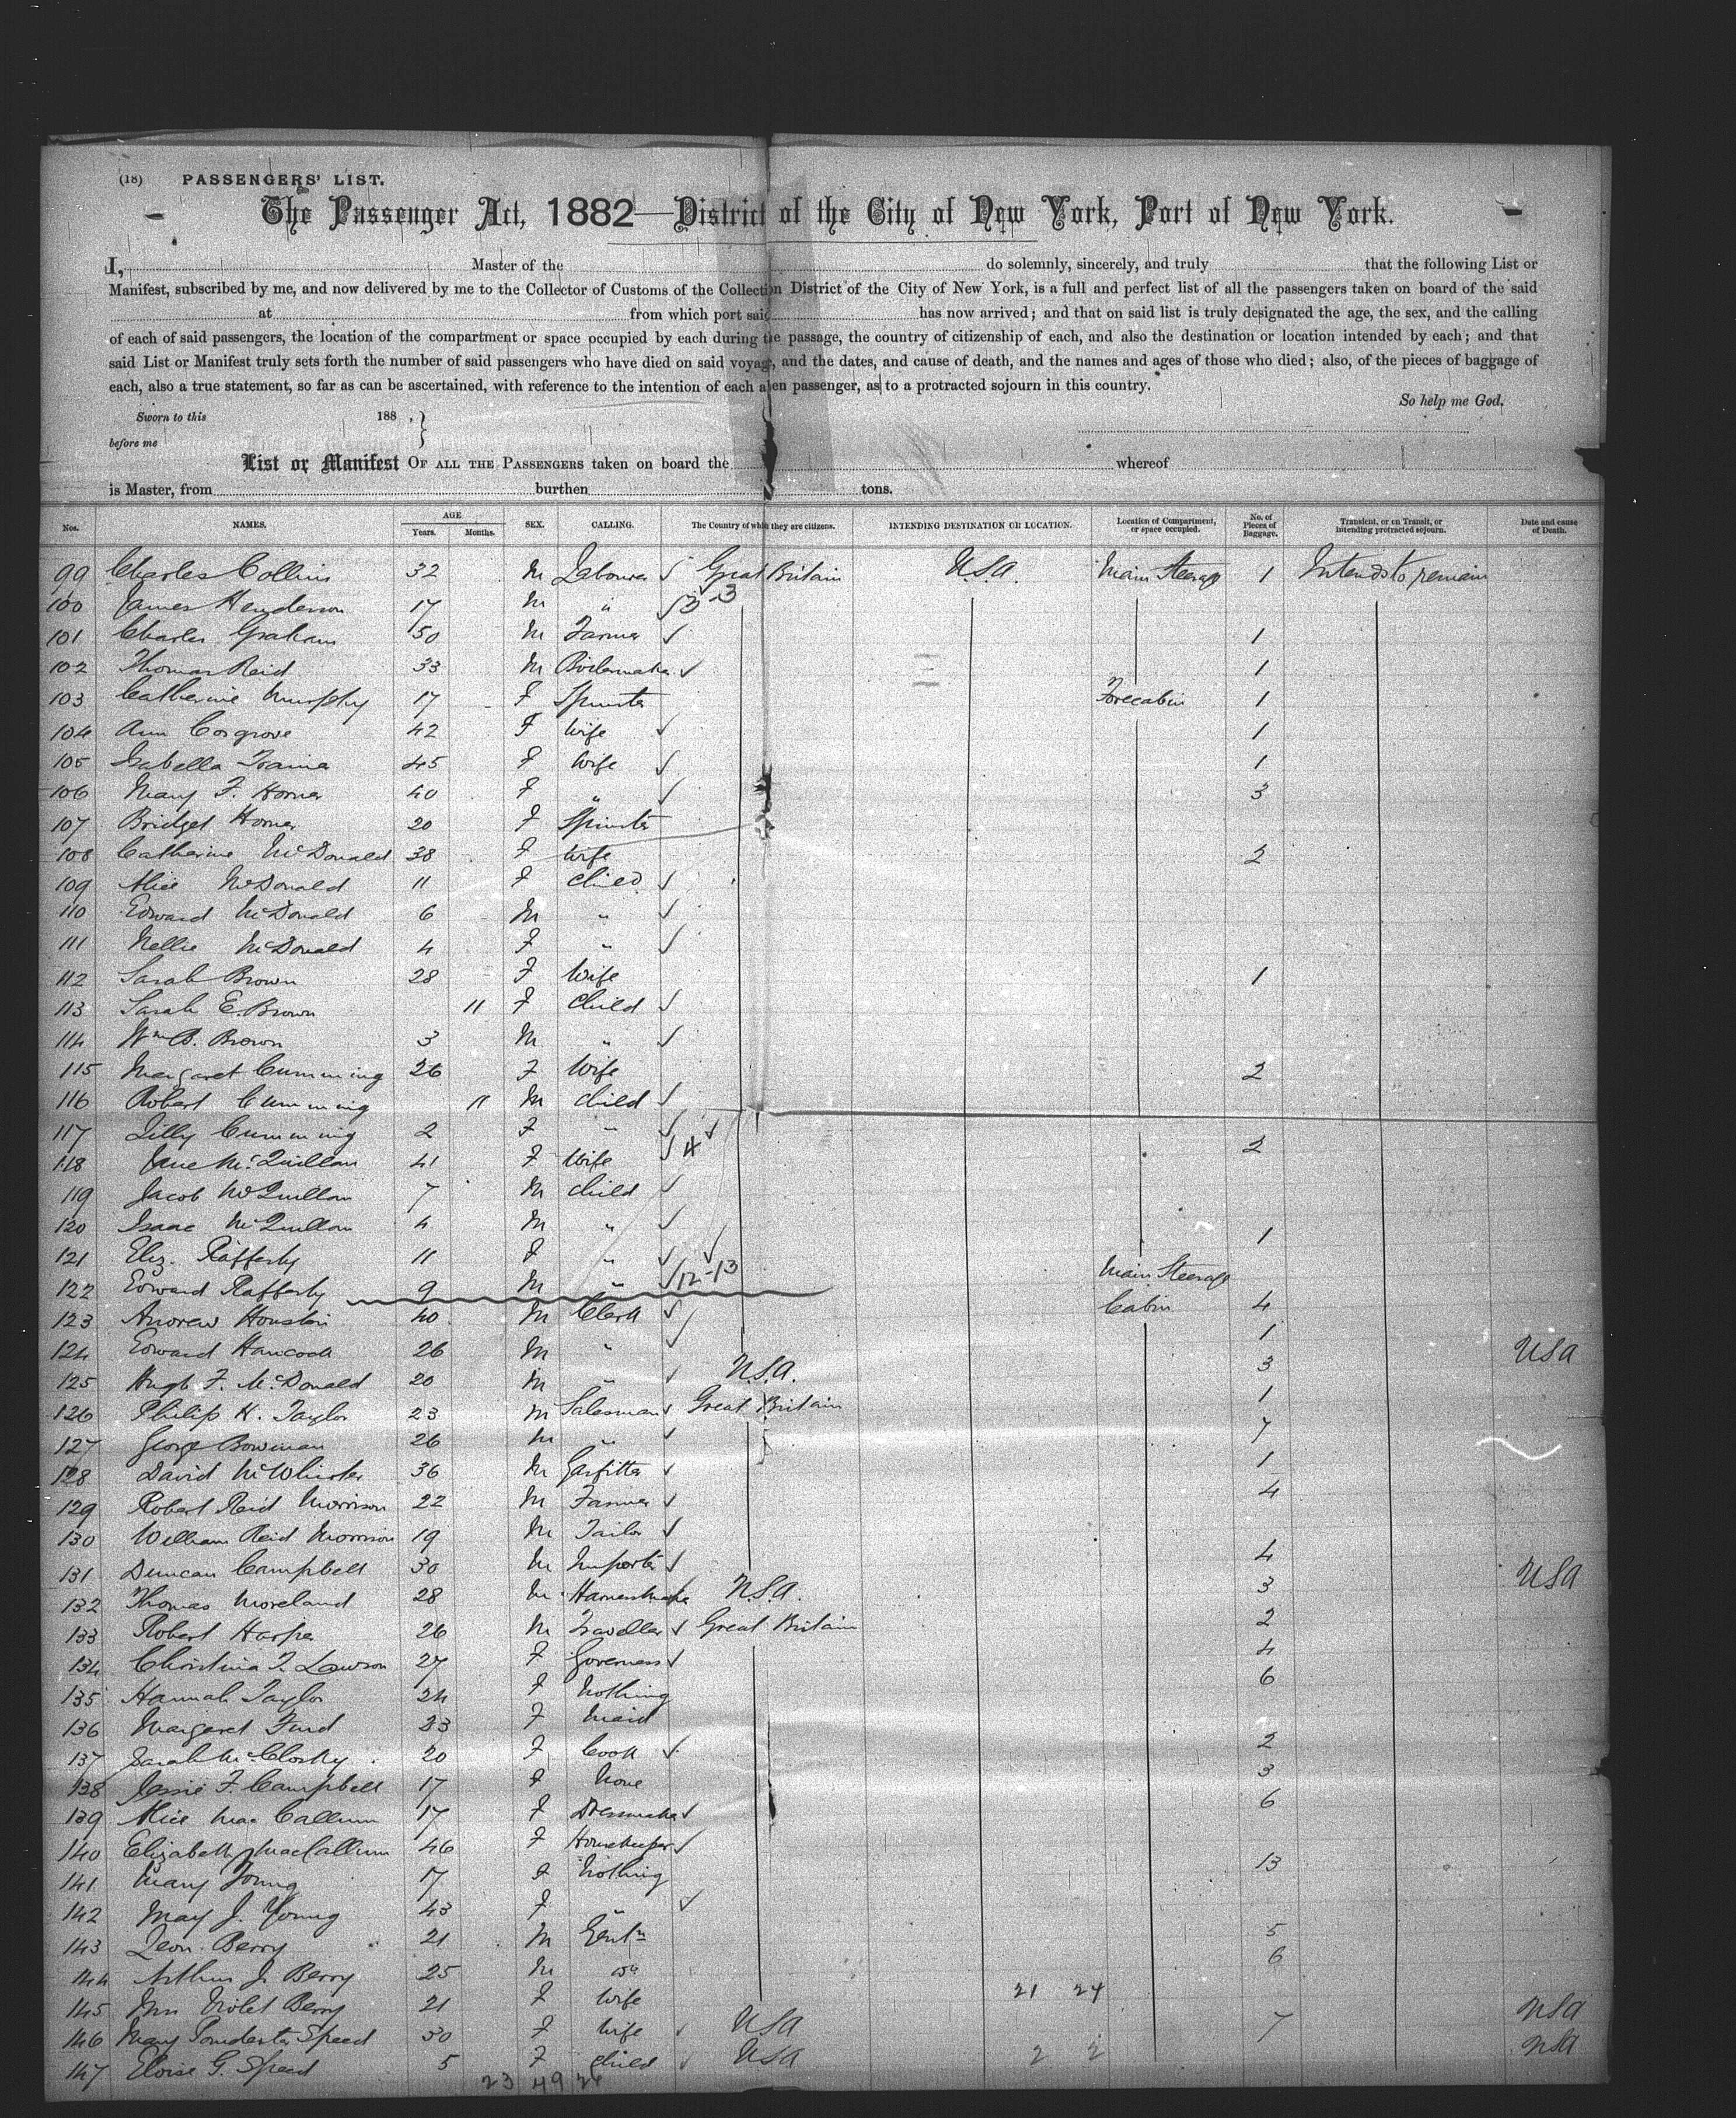 (18) PASSENGERS' LIST.
The Passenger Act, 1882—District of the City of New York, Port of New York.
I, Master of the do solemnly, sincerely, and truly that the following List or
Manifest, subscribed by me, and now delivered by me to the Collector of Customs of the Collection District of the City of New York, is a full and perfect list of all the passengers taken on board of the said
at from which port said has now arrived; and that on said list is truly designated the age, the sex, and the calling
of each of said passengers, the location of the compartment or space occupied by each during the passage, the country of citizenship of each, and also the destination or location intended by each; and that
said List or Manifest truly sets forth the number of said passengers who have died on said voyage, and the dates, and cause of death, and the names and ages of those who died; also, of the pieces of baggage of
each, also a true statement, so far as can be ascertained, with reference to the intention of each alien passenger, as to a protracted sojourn in this country.
So help me God.
Sworn to this 188 .
before me
List or Manifest OF ALL THE PASSENGERS taken on board the whereof
is Master, from burthen tons.
Nos. NAMES. AGE Years. Months. SEX. CALLING. The Country of which they are citizens. INTENDING DESTINATION OR LOCATION. Location of Compartment, or space occupied. No. of Pieces of Baggage. Transient, or on Transit, or intending protracted sojourn. Date and cause of Death.
99 Charles Collins 32 M Labourer Great Britain U.S.A. Main Steerage 1 Intends to remain
100 James Henderson 17 M " 3-3
101 Charles Graham 50 M Farmer 1
102 Thomas Reid 33 M Boilermaker 1
103 Catherine Murphy 17 F Spinster Forecabin 1
104 Ann Cosgrove 42 F Wife 1
105 Isabella 45 F Wife 1
106 Mary F. Horner 40 F " 3
107 Bridget Horner 20 F Spinster
108 Catherine McDonald 38 F Wife 2
109 Alice McDonald 11 F Child
110 Edward McDonald 6 M "
111 Nellie McDonald 4 F "
112 Sarah Brown 28 F Wife 1
113 Sarah E. Brown 11 F Child
114 Wm B. Brown 3 M "
115 Margaret Cumming 26 F Wife 2
116 Robert Cumming 11 M Child
117 Lilly Cumming 2 F "
118 Jane McQuillan 41 F Wife 4 2
119 Jacob McQuillan 7 M Child
120 Isaac McQuillan 4 M "
121 Eliz. Rafferty 11 F " 1
122 Edward Rafferty 9 M " 12-13 Main Steerage
123 Andrew Houston 40 M Clerk Cabin 4
124 Edward Hancock 26 M " 1
125 Hugh F. McDonald 20 M " U.S.A. 3 USA
126 Philip H. Taylor 23 M Salesman Great Britain 1
127 George Bowman 26 M " 7
128 David McWhirter 36 M Gasfitter 1
129 Robert Reid Morrison 22 M Farmer 4
130 William Reid Morrison 19 M Tailor
131 Duncan Campbell 30 M Importer 4
132 Thomas Moreland 28 M Harnessmaker U.S.A. 3 USA
133 Robert Harper 26 M Traveller Great Britain 2
134 Christina T. Lawson 27 F Governess 4
135 Hannah Taylor 24 F Nothing 6
136 Margaret 23 F Maid
137 Sarah McClosky 20 F Cook 2
138 Jessie F. Campbell 17 F None 3
139 Alice MacCallum 17 F Dressmaker 6
140 Elizabeth MacCallum 46 F Housekeeper
141 Mary Young 17 F Nothing 13
142 May J. Young 43 F "
143 Leon. Berry 21 M Gentn 5
144 Arthur J. Berry 25 M do 6
145 Mrs Violet Berry 21 F Wife 21 24
146 Mary Speed 30 F Wife USA 7 USA
147 Eloise G. Speed 5 F Child USA 2 2 USA
23 49 26